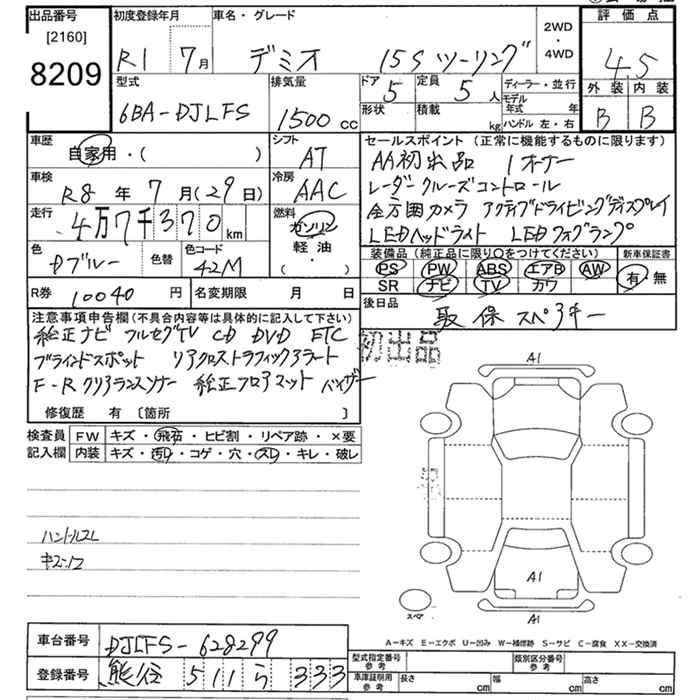 出品番号
[2160]
8209
初度登録年月
R1 7月
車名・グレード
デミオ 15S ツーリング
2WD
・
4WD
評価点
4.5
外装 内装
B B
型式
6BA-DJLFS
排気量
1500cc
ドア 5
形状
定員 5人
積載 kg
ディーラー・並行
モデル年式 年
ハンドル 左・右
車歴
自家用・( )
シフト
AT
車検
R8年7月(29日)
冷房
AAC
走行
4万7千370km
燃料
ガソリン
軽油
・
( )
色
Dブルー
色替
色コード
42M
R券
10040円
名変期限 月 日
セールスポイント (正常に機能するものに限ります)
AA初出品 1オーナー
レーダークルーズコントロール
全方囲カメラ アクティブドライビングディスプレイ
LEDヘッドライト LEDフォグランプ
装備品 (純正品に限り○をつけてください)
PS PW ABS エアB AW
SR ナビ TV カワ
新車保証書
有・無
後日品
取 保 スペアキー
注意事項申告欄(不具合内容等は具体的に記入して下さい)
純正ナビ フルセグTV CD DVD ETC
ブラインドスポット リアクロストラフィックアラート
F-Rクリアランスソナー 純正フロアマット バイザー
修復歴 有 〔箇所 〕
初出品
検査員
記入欄
FW キズ・飛石・ヒビ割・リペア跡・×要
内装 キズ・汚れ・コゲ・穴・スレ・キレ・破レ
ハンドルスレ
A1
A1
A1
スペア
A-キズ E-エクボ U-凹み W-補修跡 S-サビ C-腐食 XX-交換済
車台番号
DJLFS-628299
登録番号
熊谷 511 ら 333
型式指定番号
参考
類別区分番号
参考
車庫証明用
参考
長さ cm 幅 cm 高さ cm